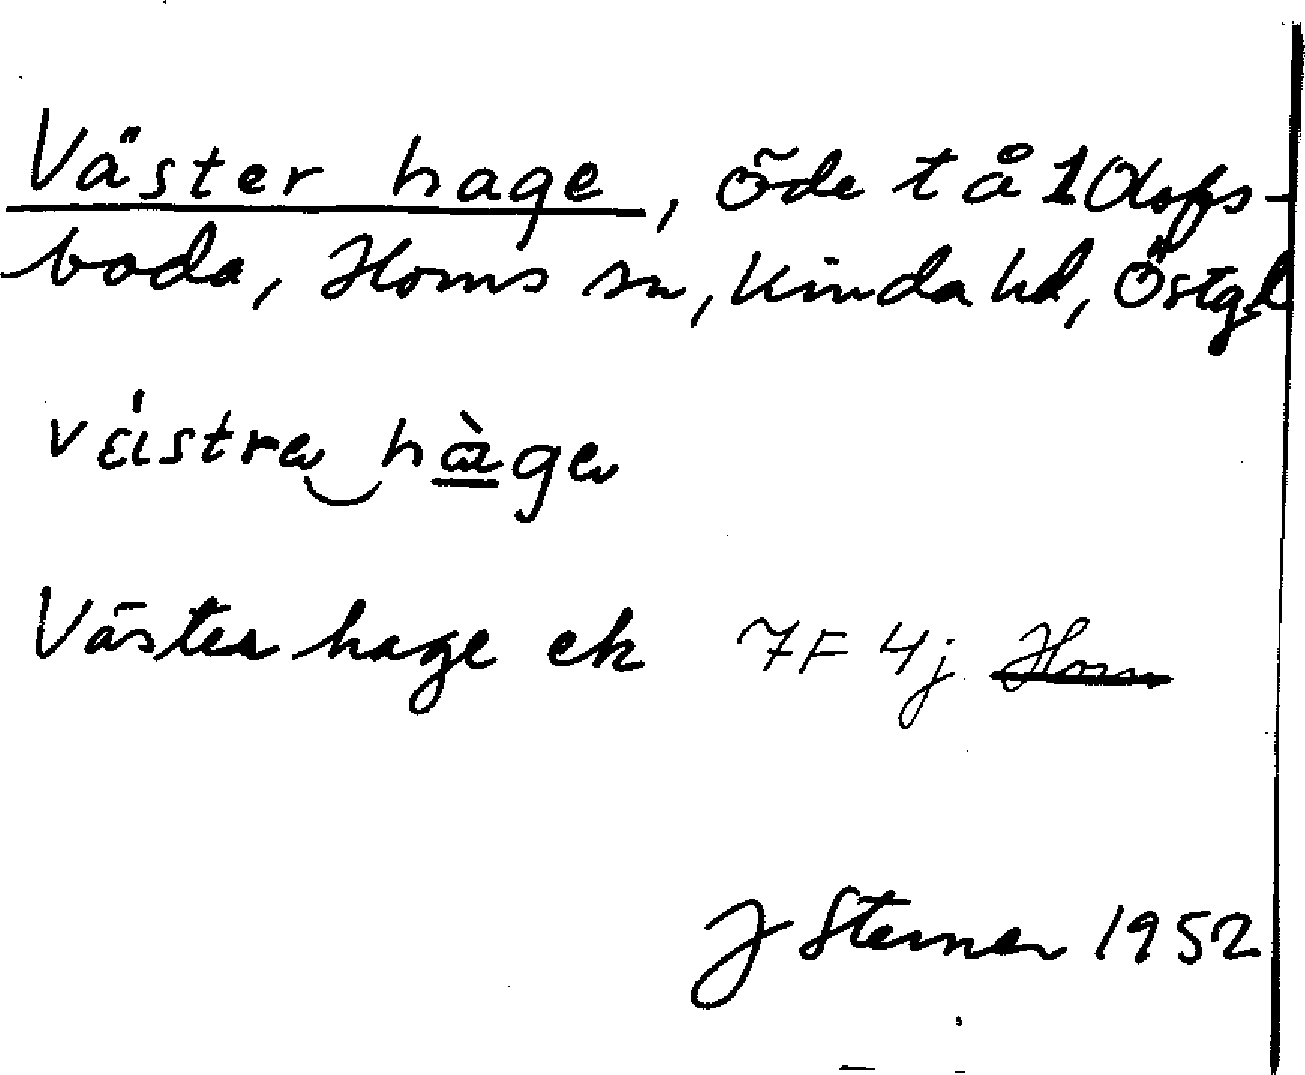 Väster hage, öde t å 1 Olofs-
boda, Horns sn, Kinda hd, Östgl
Väster hage ek 7F 4j Horn
J Sterner 1952